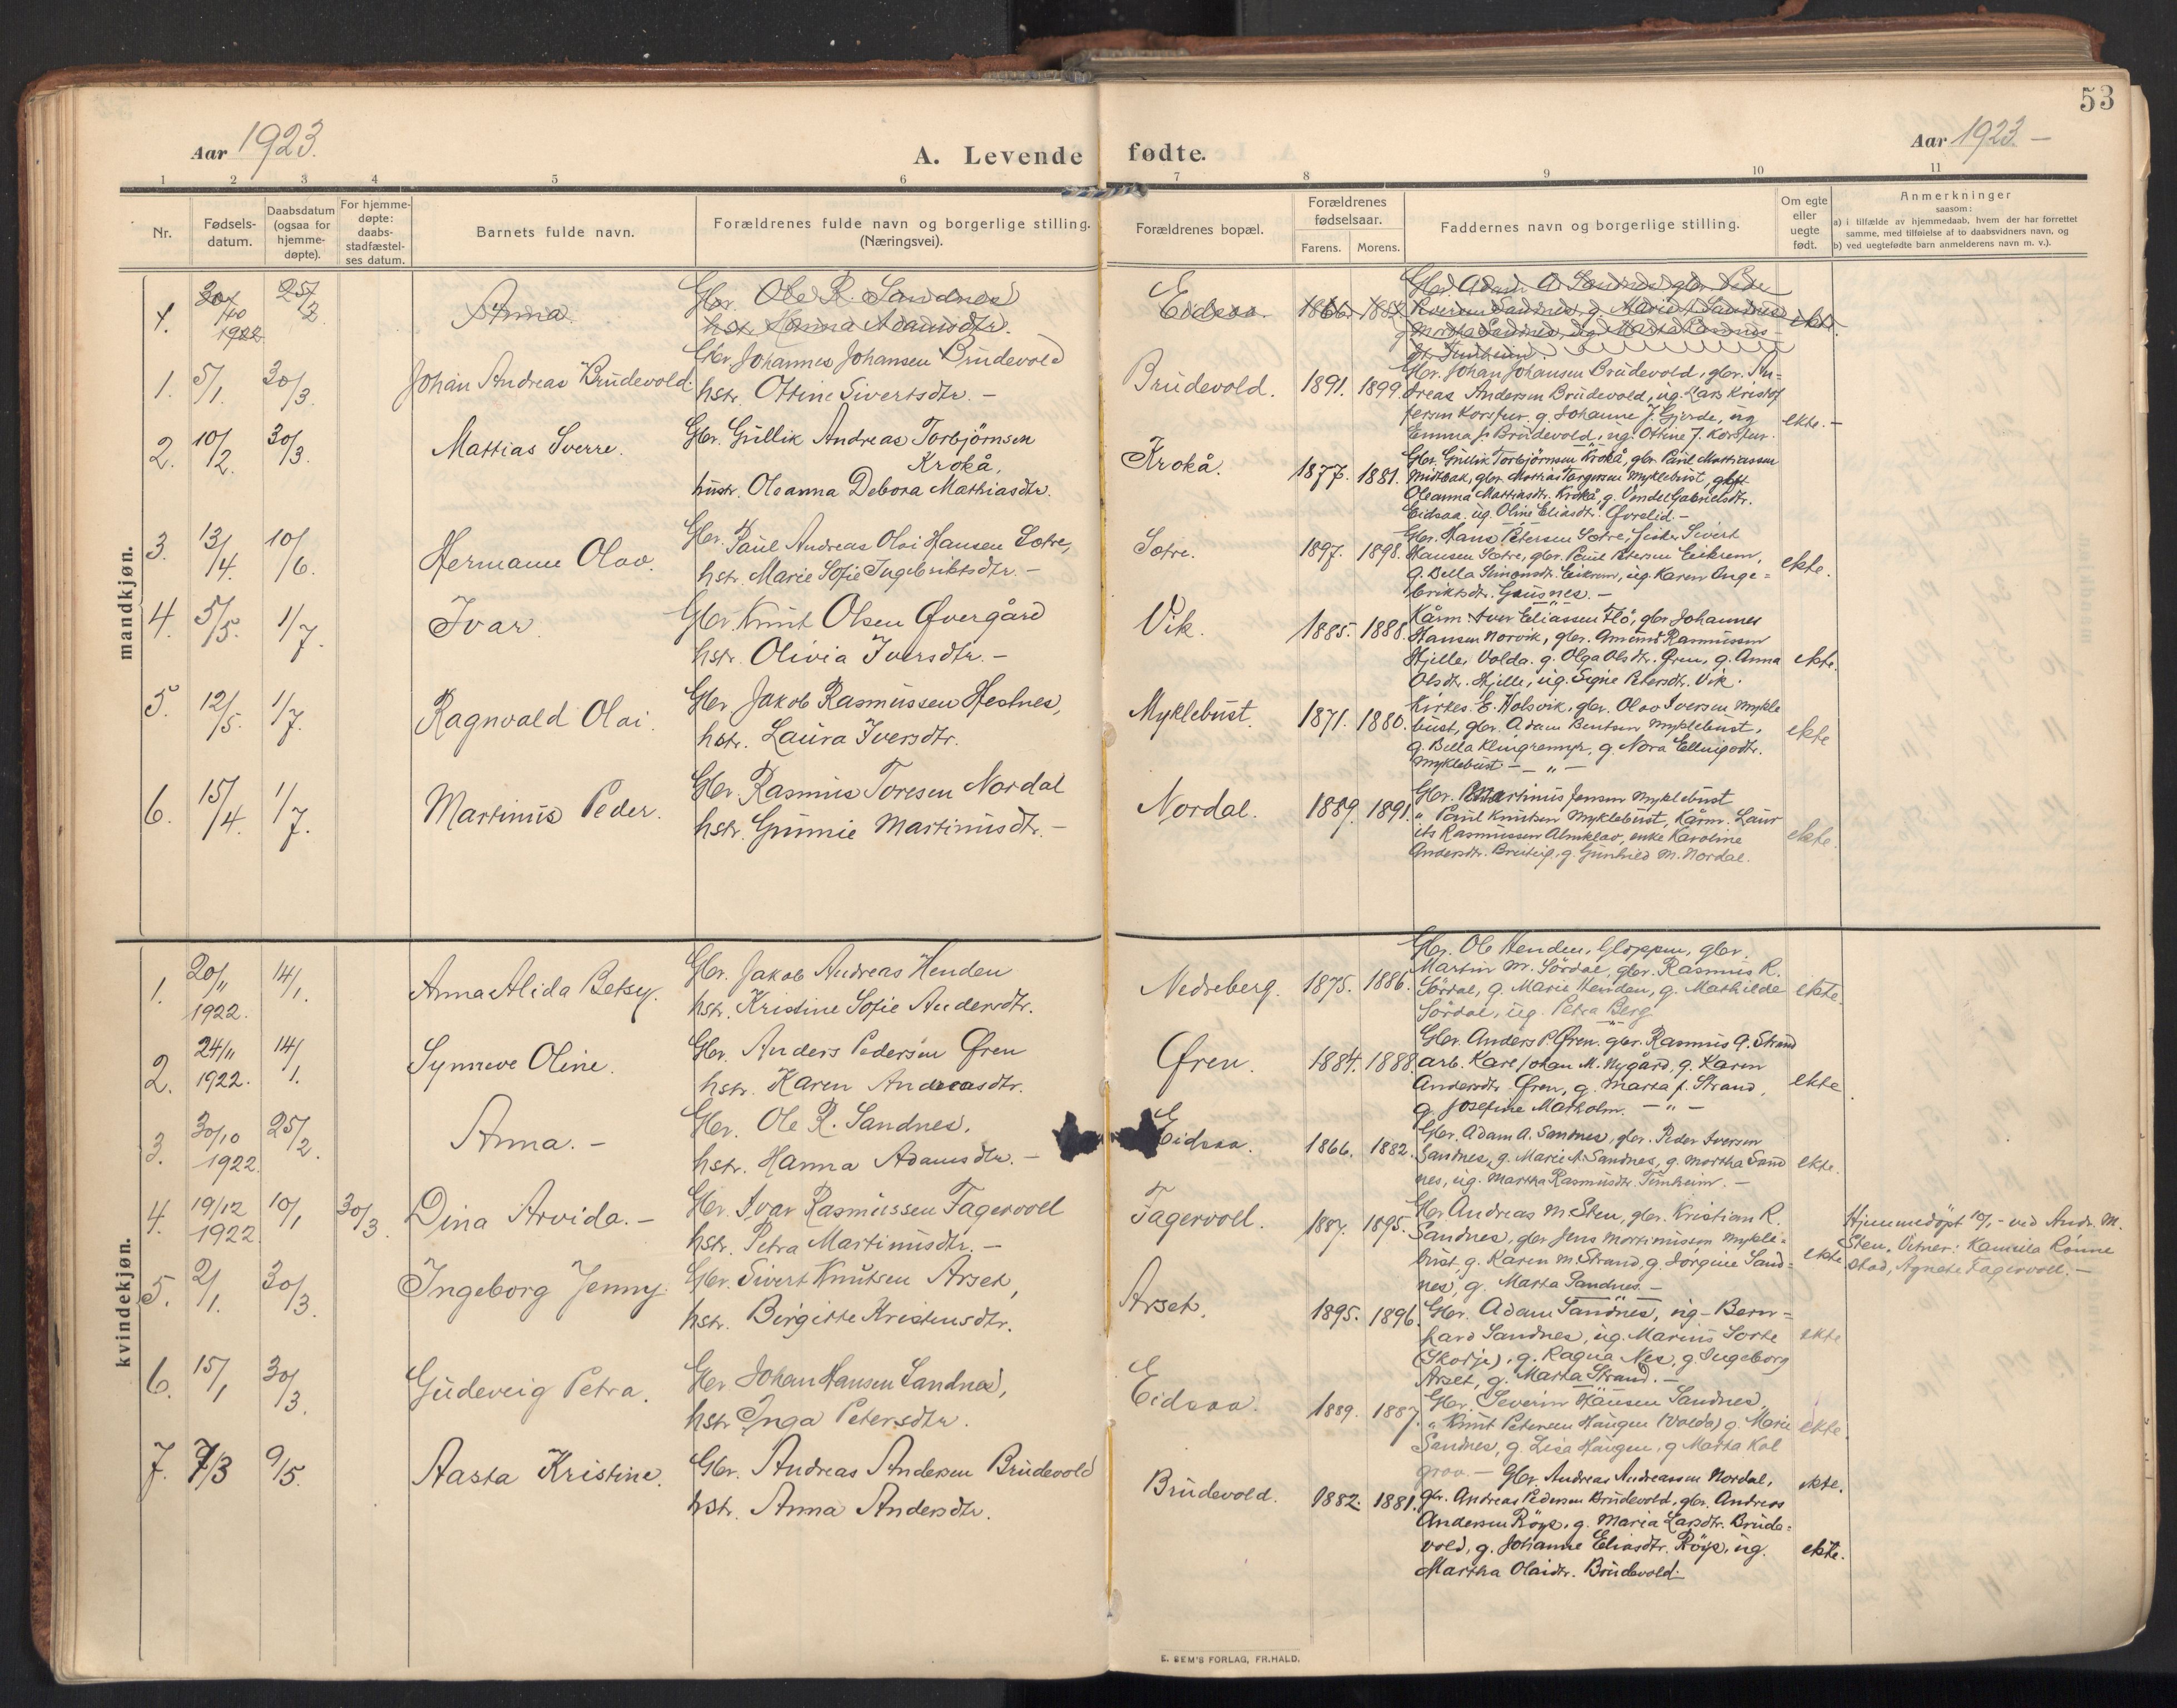 53
Aar 1923.
A. Levende fødte.
Aar 1923 —
1 2 3 4 5 6 7 8 9 10 11
Nr.
Fødsels-
datum.
Daabsdatum
(ogsaa for
hjemme-
døpte).
For hjemme-
døpte:
daabs-
stadfæstel-
ses datum.
Barnets fulde navn.
Forældrenes fulde navn og borgerlige stilling.
(Næringsvei).
Forældrenes bopæl.
Forældrenes
fødselsaar.
Farens. Morens.
Faddernes navn og borgerlige stilling.
Om egte
eller
uegte
født.
Anmerkninger
saasom:
a) i tilfælde av hjemmedaab, hvem der har forrettet
samme, med tilføielse af to daabsvidners navn, og
b) ved uegtefødte barn anmelderens navn m. v.).
mandkjøn.
1. 30/10 1922 25/2 Anna
Gbr. Ole R. Sandnes
hstr. Hanna Adamsdtr.
Eidsaa. 1866. 1882
Gbr. Adam A. Sandnes, gbr. Peder
Iversen Sandnes, g. Marie A. Sandnes
g. Martha Sandnes, ug. Marta Rasmus-
dtr. Timheim.
ekte.
1. 5/1. 30/3. Johan Andreas Brudevold.
Gbr. Johannes Johansen Brudevold
hstr. Ottine Sivertsdtr. —
Brudevold. 1891. 1899.
Gbr. Johan Johansen Brudevold, gbr. An=
dreas Andersen Brudevold, ug. Lars Kristof
fersen Korsfur. g. Johanne J. Gjerde, ug
Emma J. Brudevold, ug. Ottine J. Korsfur.
ekte. —
2. 10/2. 30/3. Mattias Sverre.
Gbr. Gullik Andreas Torbjörnsen
Krokå.
hustr. Oleanna Debora Mathiasdtr.
Krokå. 1877. 1881.
Gbr. Gullik Torbjörnsen Krokå, gbr. Paul Mattiassen
Midtbak, gbr. Mattias Torgersen Myklebust, gbft.
Oleanna Mattiasdtr. Krokå, g. Vendel Gabrielsdtr.
Eidsaa. ug. Oline Eliasdtr. Øvrelid. —
3. 13/4. 10/6. Hermann Olav.
Gbr. Paul Andreas Olai Hansen Sætre,
hstr. Marie Sofie Ingebriktsdtr. —
Sætre. 1897. 1898.
Gbr. Hans Petersen Sætre, fisker Sivert
Hansen Sætre, gbr. Paul Petersen Eikrem,
g. Bella Simonsdtr. Eikrem, ug. Karen Inge=
briktsdtr. Gausnes. —
ekte.
4. 5/5. 1/7. Ivar.
Gbr. Knut Olsen Øvergård
hstr. Olivia Iversdtr. —
Vik. 1885. 1888.
Kårm. Iver Eliassen Flö, gbr. Johannes
Hansen Norvik, gbr. Amund Rasmussen
Hjelle, Volda. g. Olga Olsdtr. Øren, g. Anna
Olsdtr. Hjelle, ug. Signe Petersdtr. Vik.
ekte.
5. 12/5. 1/7. Ragnvald Olai.
Gbr. Jakob Rasmussen Hestnes,
hstr. Laura Iversdtr.
Myklebust. 1871. 1880.
Kirkes. E. Holsvik, gbr. Olav Iversen Mykle
bust, gbr. Adam Bentsen Myklebust,
g. Bella Klungremyr, g. Nora Ellingsdtr.
Myklebust — „ —
ekte
6. 15/4. 1/7. Martinus Peder.
Gbr. Rasmus Toresen Nordal
hstr. Gunnie Martinusdtr. —
Nordal. 1889. 1891.
Gbr. Martinus Jensen Myklebust
„ Paul Knutsen Myklebust, Kårm. Laur
its Rasmussen Almklov, enke Karoline
Andersdtr. Breiteig, g. Gunhild M. Nordal.
ekte.
kvindekjøn.
1. 20/11 1922. 14/1. Anna Alida Betsey.
Gbr. Jakob Andreas Henden
hstr. Kristine Sofie Andersdtr.
Nedreberg. 1875. 1886.
Gbr. Ole Henden, Gloppen, gbr.
Martin M. Sördal, gbr. Rasmus R.
Sördal, g. Marie Henden, g. Mathilde
Sördal, ug. Petra Berg.
ekte.
2. 24/11 1922. 14/1. Synneve Oline.
Gbr. Anders Pedersen Øren
hstr. Karen Andreasdtr.
Øren. 1884. 1888.
Gbr. Anders P. Øren, gbr. Rasmus A. Strand
arb. Kare Johan M. Nygård, g. Karen
Andersdtr. Øren, g. Marta J. Strand,
g. Josefine Marholm. — „ —
ekte
3. 30/10 1922. 25/2. Anna. —
Gbr. Ole R. Sandnes.
hstr. Hanna Adamsdtr. —
Eidsaa. 1866. 1882.
Gbr. Adam A. Sandnes, gbr. Peder Iversen
Sandnes, g. Marie A. Sandnes, g. Martha Sand
nes, ug. Martha Rasmusdtr. Timheim. —
ekte.
4. 19/12 1922. 10/1 30/3. Dina Arvida. —
Gbr. Ivar Rasmussen Fagervoll
hstr. Petra Martinusdtr. —
Fagervoll. 1887. 1895.
Gbr. Andreas M. Sten, gbr. Kristian R.
Sandnes, gbr. Jens Martinussen Mykle=
bust, g. Karen M. Strand, g. Jörgine Sand-
nes, g. Marta Sandnes. —
ekte
Hjemmedöpt 10/1 — ved Andr. M.
Sten. Vitner: Kamila Rönne
stad, Agnete Fagervoll. —
5. 2/1. 30/3. Ingeborg Jenny.
Gbr. Sivert Knutsen Årset,
hstr. Birgitte Kristensdtr.
Arset. 1895. 1896.
Gbr. Adam Sandnes, ug. Bern=
hard Sandnes, ug. Marius Sorte
(Skodje), g. Ragna Nes, g. Ingeborg
Arset, g. Marta Strand. —
ekte
6. 15/1 30/3. Gudveig Petra.
Gbr. Johan Hansen Sandnes,
hstr. Inga Petersdtr.
Eidsaa. 1889. 1887.
Gbr. Severin Hansen Sandnes,
„ Knut Petersen Haugen (Volda) g. Marie
Sandnes, g. Lisa Haugen, g. Marta Kol
grov. —
ekte.
7. 7/3 9/5. Aasta Kristine.
Gbr. Andreas Andersen Brudevold
hstr. Anna Andersdtr.
Brudevold. 1882. 1881.
Gbr. Andreas Andreassen Nordal,
gbr. Andreas Pedersen Brudevold, gbr. Andreas
Andersen Röys, g. Maria Larsdtr. Brude=
vold, g. Johanne Eliasdtr. Röys, ug.
Martha Olaidtr. Brudevold.
ekte.
ekte.
E. SEM'S FORLAG, FR.HALD.